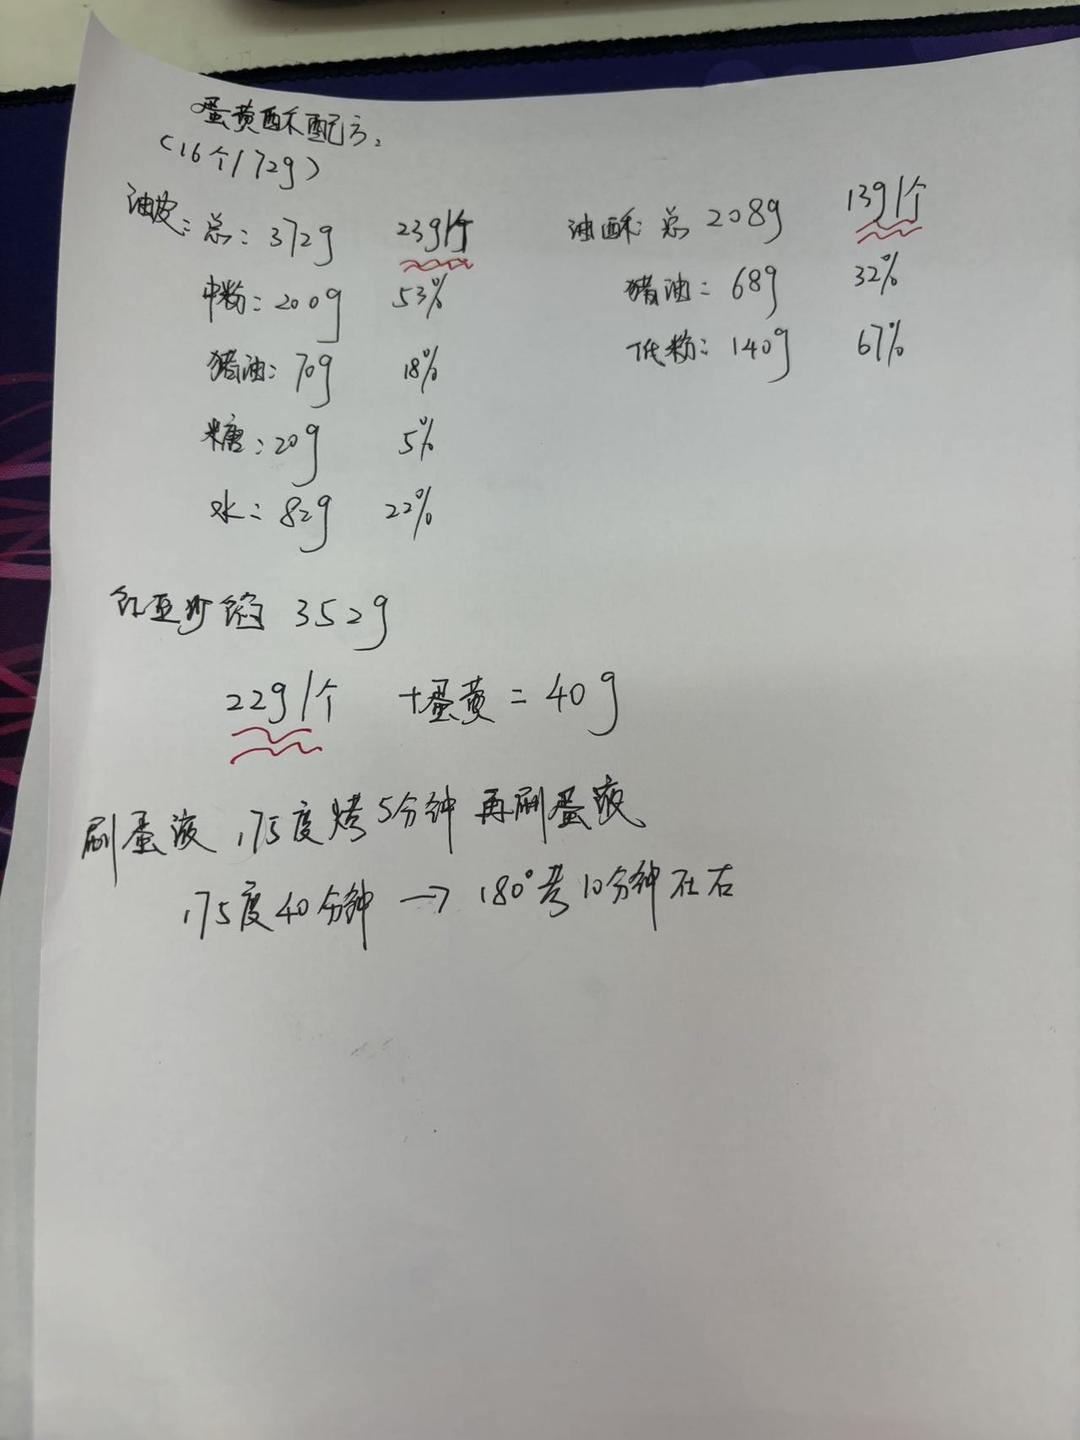 蛋黄酥配方.
(16个/72g)
油皮: 总: 372g 23g/个
中粉: 200g 53%
猪油: 70g 18%
糖: 20g 5%
水: 82g 22%
油酥: 总 208g 13g/个
猪油: 68g 32%
低粉: 140g 67%
红豆沙馅 352g
22g/个 +蛋黄=40g
刷蛋液,175度烤5分钟 再刷蛋液
175度40分钟→180°考10分钟左右